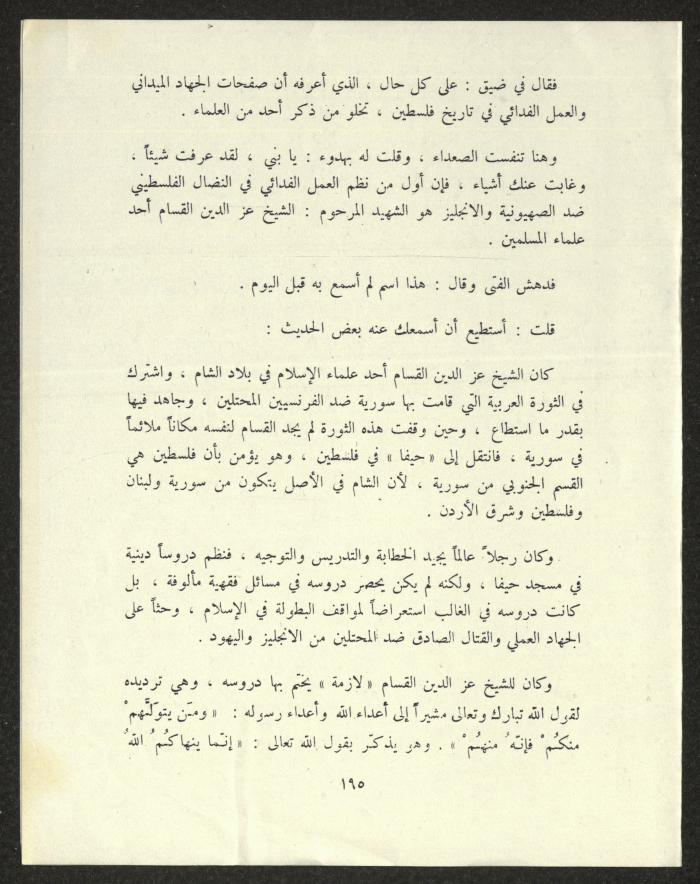 فقال في ضيق : على كل حال ، الذي أعرفه أن صفحات الجهاد الميداني
والعمل الفدائي في تاريخ فلسطين ، تخلو من ذكر أحد من العلماء .
وهنا تنفست الصعداء ، وقلت له بهدوء : يا بني ، لقد عرفت شيئاً ،
وغابت عنك أشياء ، فإن أول من نظم العمل الفدائي في النضال الفلسطيني
ضد الصهيونية والانجليز هو الشهيد المرحوم : الشيخ عز الدين القسام أحد
علماء المسلمين .
فدهش الفتى وقال : هذا اسم لم أسمع به قبل اليوم .
قلت : أستطيع أن أسمعك عنه بعض الحديث :
كان الشيخ عز الدين القسام أحد علماء الإسلام في بلاد الشام ، واشترك
في الثورة العربية التي قامت بها سورية ضد الفرنسيين المحتلين ، وجاهد فيها
بقدر ما استطاع ، وحين وقفت هذه الثورة لم يجد القسام لنفسه مكاناً ملائماً
في سورية ، فانتقل إلى « حيفا » في فلسطين ، وهو يؤمن بأن فلسطين هي
القسم الجنوبي من سورية ، لأن الشام في الأصل يتكون من سورية ولبنان
وفلسطين وشرق الأردن .
وكان رجلاً عالماً يجيد الخطابة والتدريس والتوجيه ، فنظم دروساً دينية
في مسجد حيفا ، ولكنه لم يكن يحصر دروسه في مسائل فقهية مألوفة ، بل
كانت دروسه في الغالب استعراضاً لمواقف البطولة في الإسلام ، وحثاً على
الجهاد العملي والقتال الصادق ضد المحتلين من الانجليز واليهود .
وكان للشيخ عز الدين القسام « لازمة » يختم بها دروسه ، وهي ترديده
لقول الله تبارك وتعالى مشيراً إلى أعداء الله وأعداء رسوله : « ومَن يتولَّهمْ
منكُمْ فإنّهُ منهُمْ » . وهو يذكّر بقول الله تعالى : « إنّما ينهاكُمُ اللهُ
١٩٥